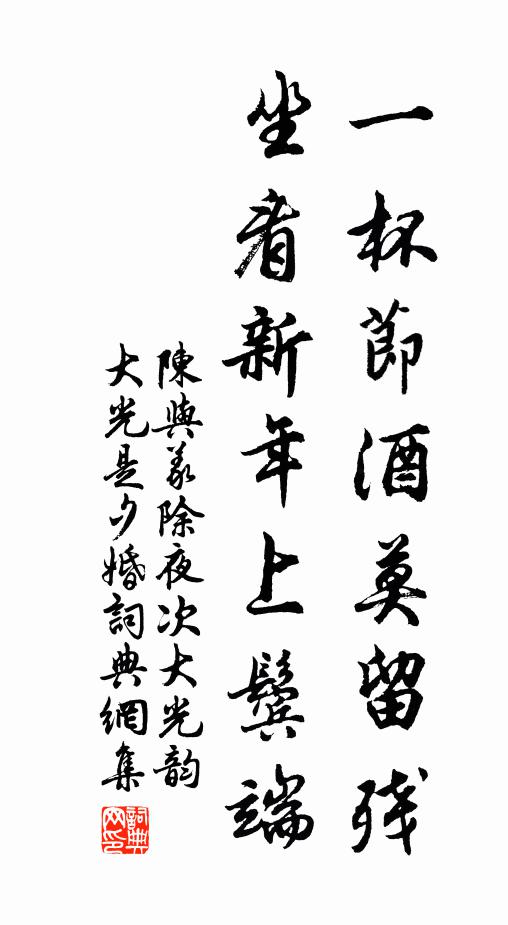 一杯節酒莫留残
坐看新年上鬓端
陳與義除夜次大光韵
大光是夕婚詞典網集
詞典
网印